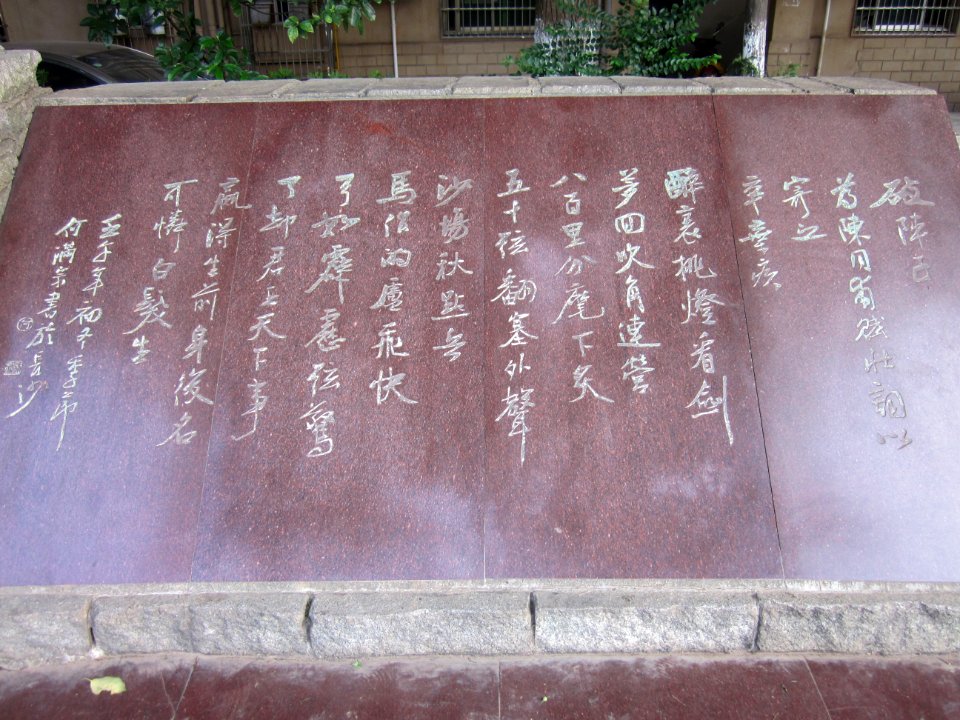 破陣子
為陳同甫賦壯詞以
寄之
辛棄疾
醉裏挑燈看劍
夢回吹角連營
八百里分麾下炙
五十弦翻塞外聲
沙場秋點兵
馬作的盧飛快
弓如霹靂弦驚
了却君王天下事
贏得生前身後名
可憐白髮生
壬午年初冬
何滿宗書於長沙